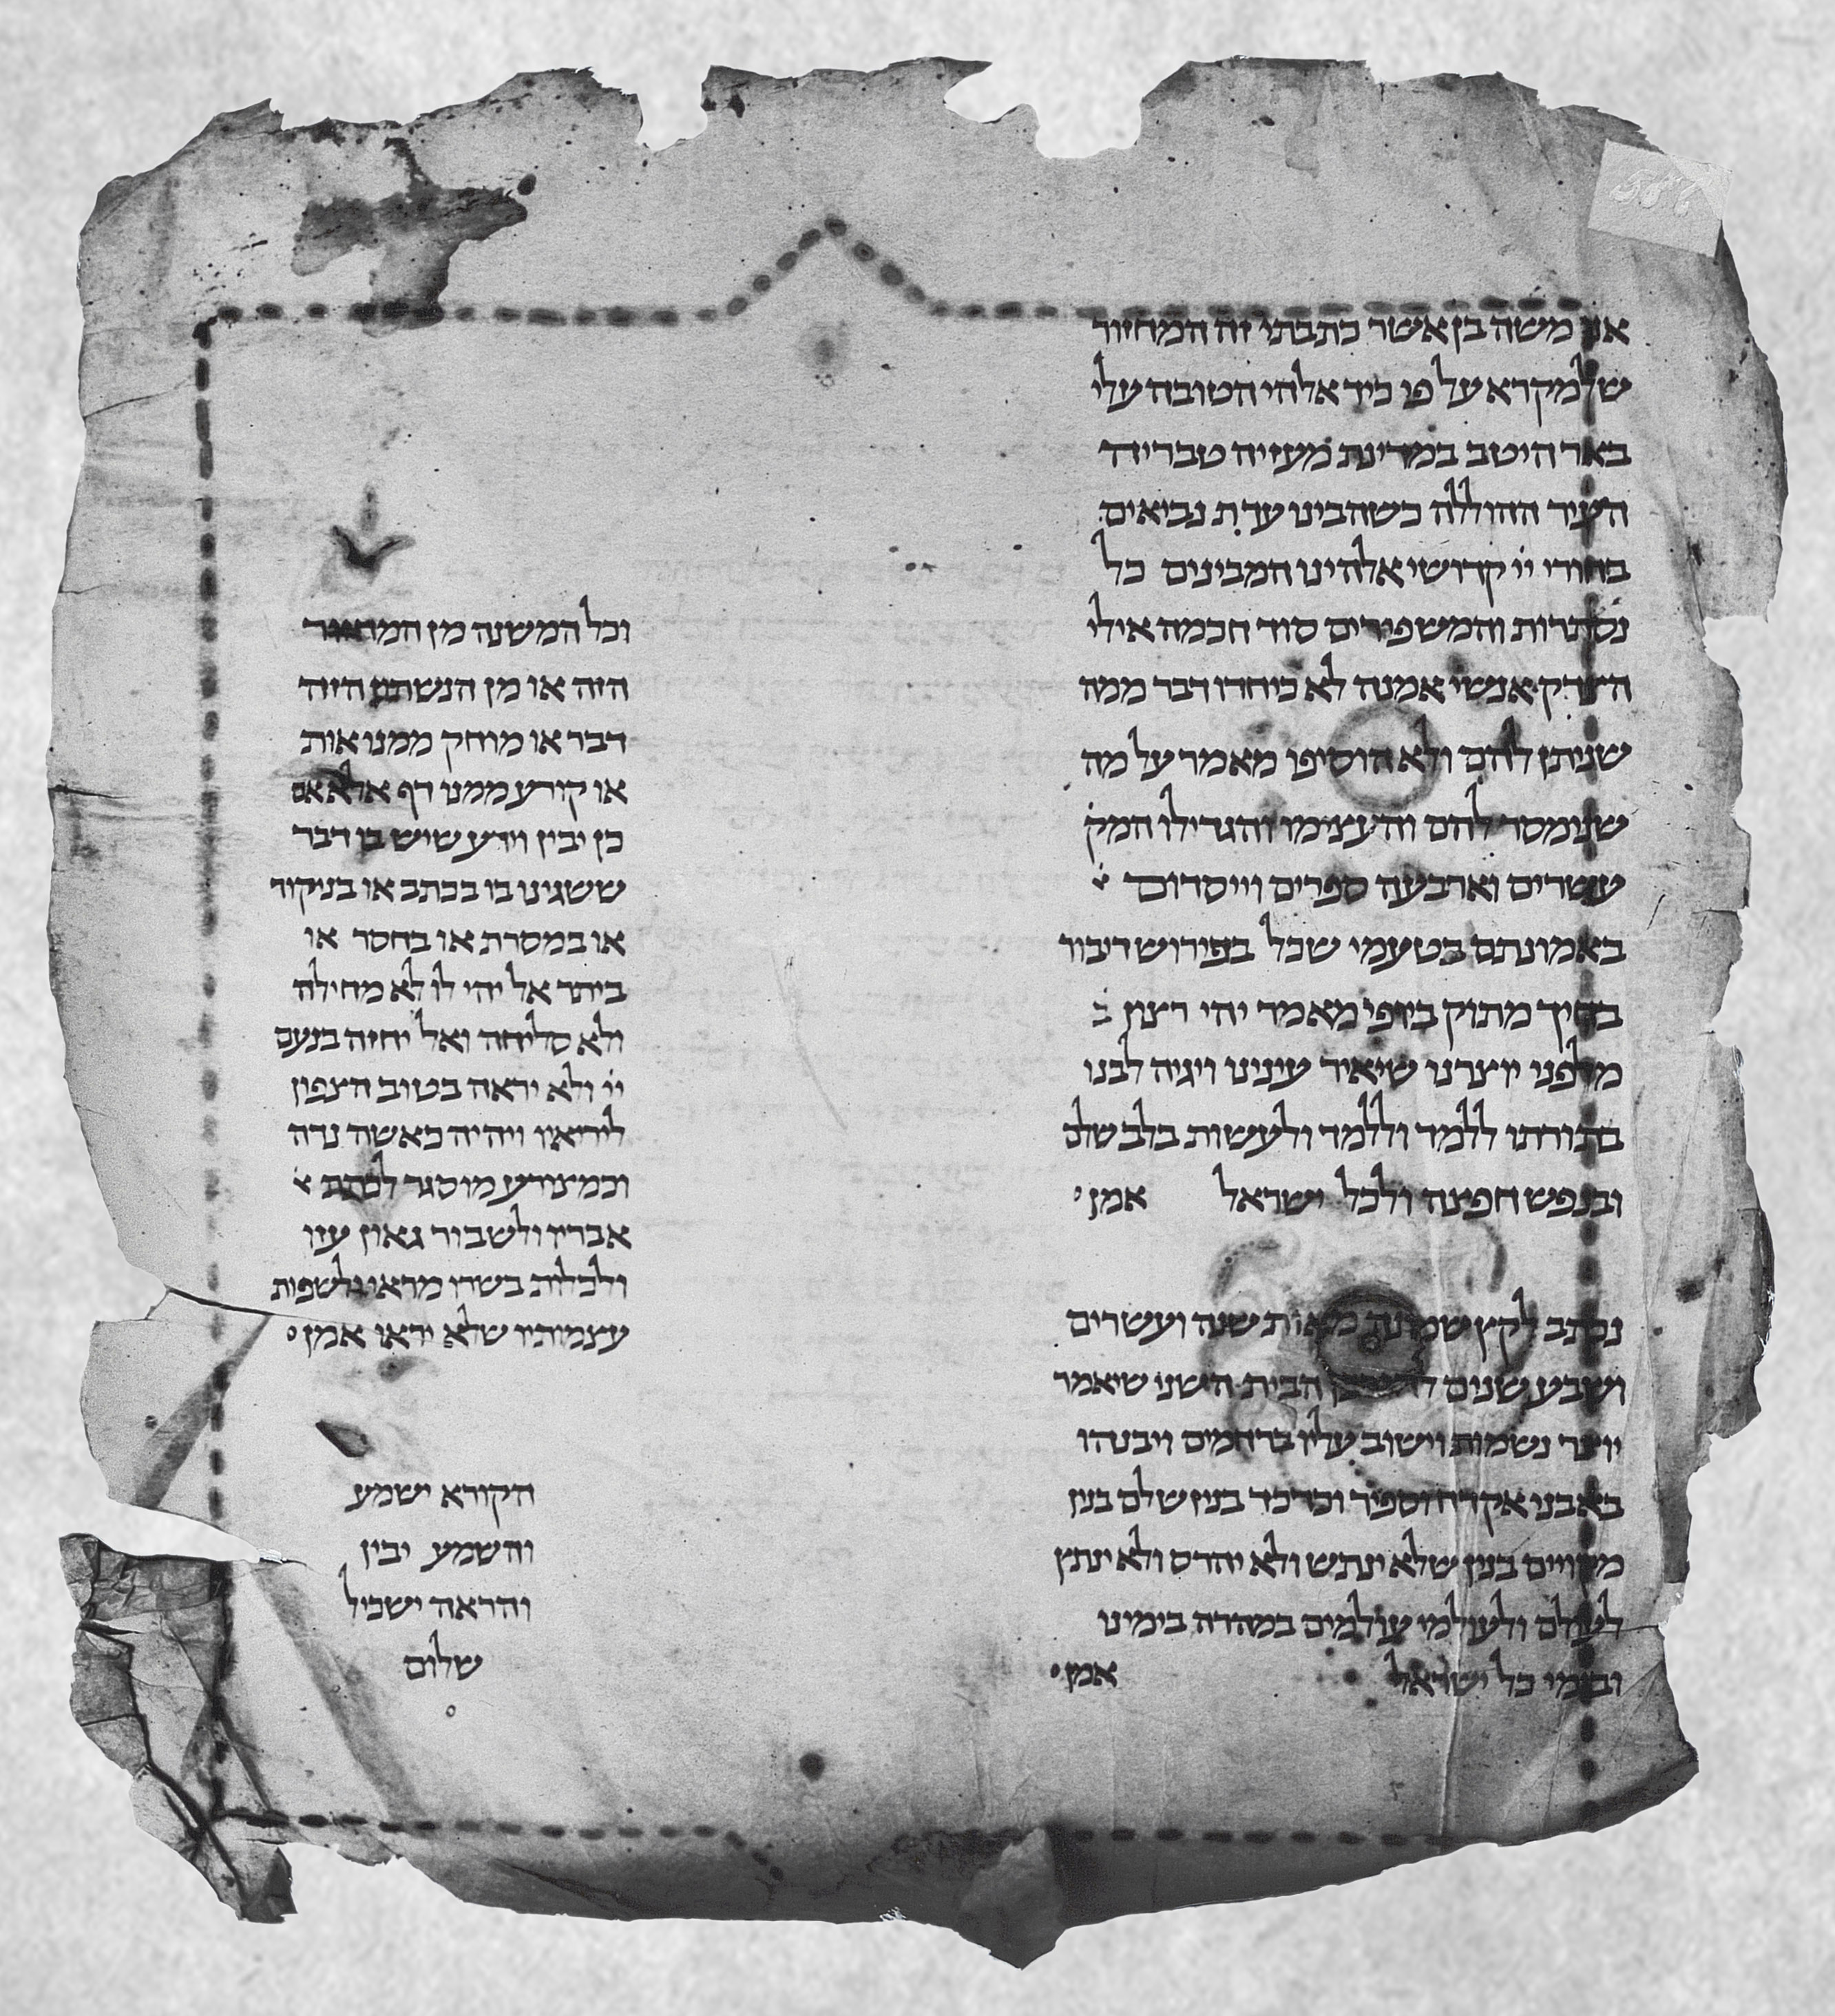 אני משה בן אשר כתבתי זה המחזור
שלמקרא על פי כיד אלהי הטובה עלי
באר היטב במדינת מעזיה טבריה
העיר ההוללה כשהבינו עדת נביאים
בחורי ייי קדושי אלהינו המבינים כל
נסתרות והמשפירים סוד חכמה אילי
הצדק אנשי אמנה לא כיחדו דבר ממה
שניתן להם ולא הוסיפו מאמר על מה
שנימסר להם והעצימו והגדילו המק
עשרים וארבעה ספרים וייסדום
באמונתם בטעמי שכל בפירוש דיבור
בחיך מתוק ביופי מאמר יהי רצון
מלפני יוצרנו שיאיר עינינו ויגיה לבנו
בתורתו ללמד וללמד ולעשות בלב שלם
ובנפש חפצה ולכל ישראל אמן
נכתב לקץ שמונה מאות שנה ועשרים
ושבע שנים לחורבן הבית השני שיאמר
יוצר נשמות וישוב עליו ברחמים ויבנהו
באבני אקדח וספיר וכדכד בנין שלם בנין
מקויים בנין שלא ינתש ולא יהרס ולא ינתץ
לעולם ולעולמי עולמים במהרה בימינו
ובימי כל ישראל אמן
וכל המשנה מן המחזור
הזה או מן הנשתם הזה
דבר או מוחק ממנו אות
או קורע ממנו דף אלא אם
כן יבין וידע שיש בו דבר
ששגינו בו בכתב או בניקוד
או במסרת או בחסר או
ביתר אל יהי לו לא מחילה
ולא סליחה ואל יחזה בנעם
ייי ולא יראה בטוב הצפון
ליריאיו ויהיה כאשה נדה
וכמצורע מוסגר לכתת א
אבריו ולשבור גאון עזו
ולכלות בשרו מראי ולשפות
עצמותיו שלא יראו אמן
הקורא ישמע
והשמע יבין
והראה ישכיל
שלום